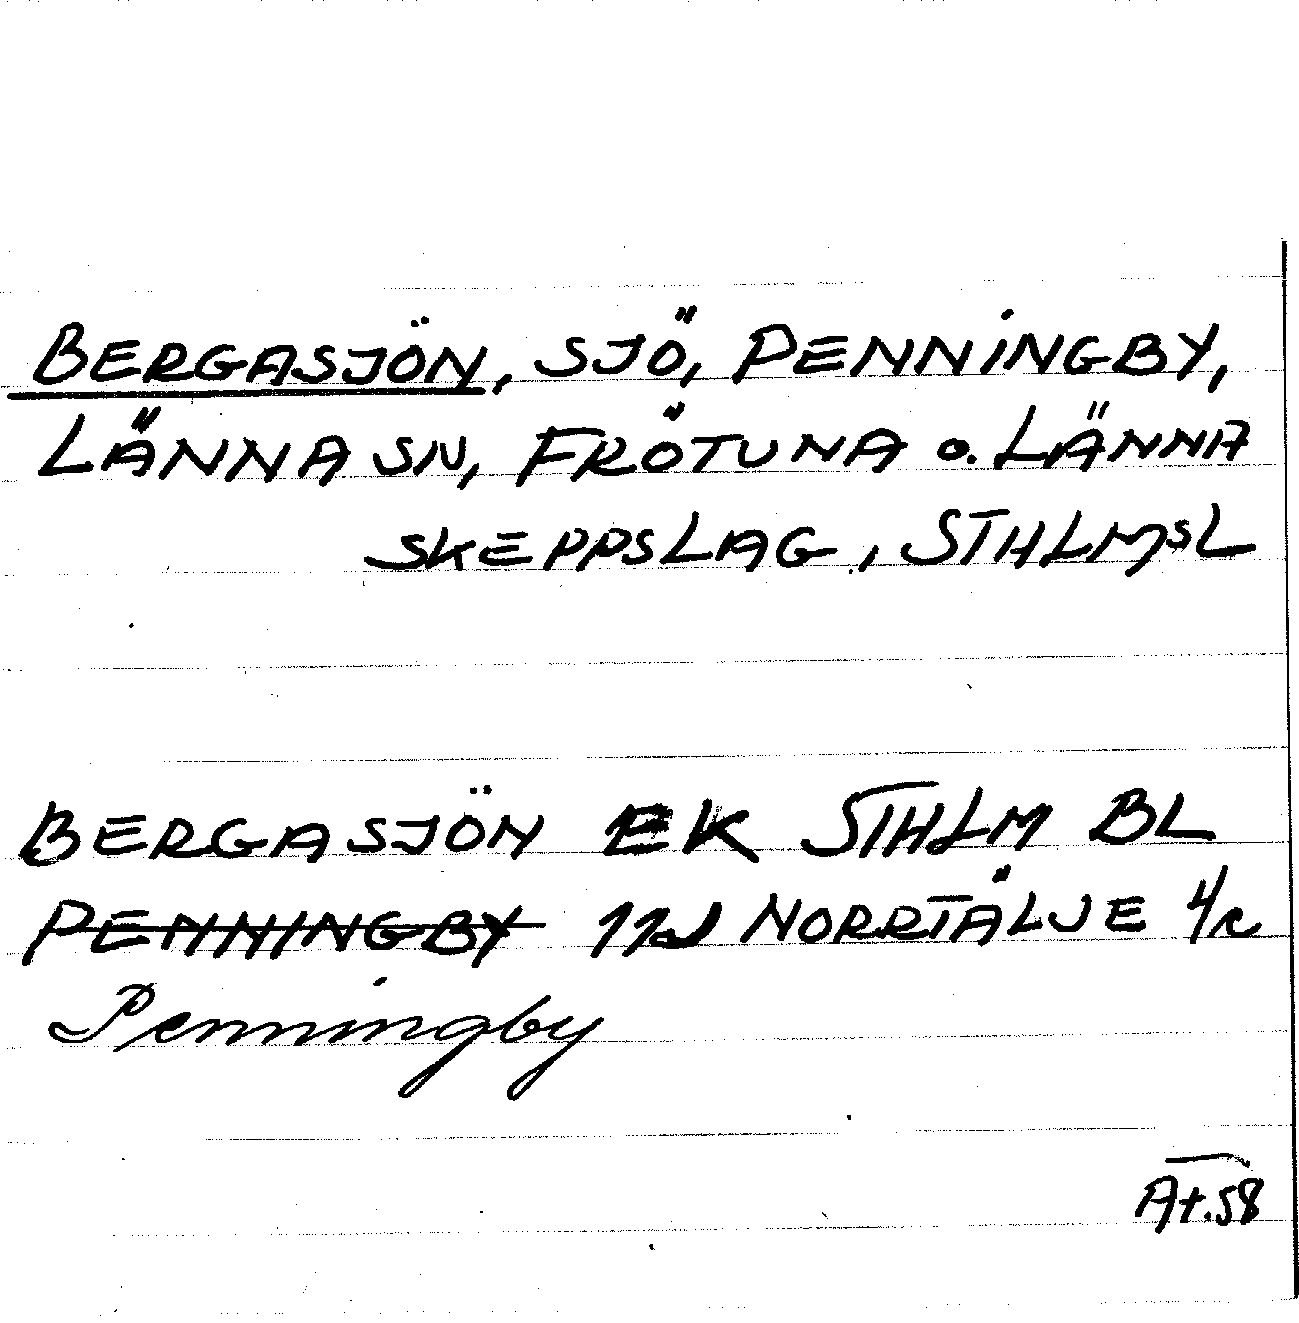 BERGASJÖN, SJÖ, PENNINGBY,
LÄNNA SN, FRÖTUNA o. LÄNNA
SKEPPSLAG, STHLMSL
BERGASJÖN EK STHLM BL
PENNINGBY 11J NORRTÄLJE 4/c
Penningby
At.58